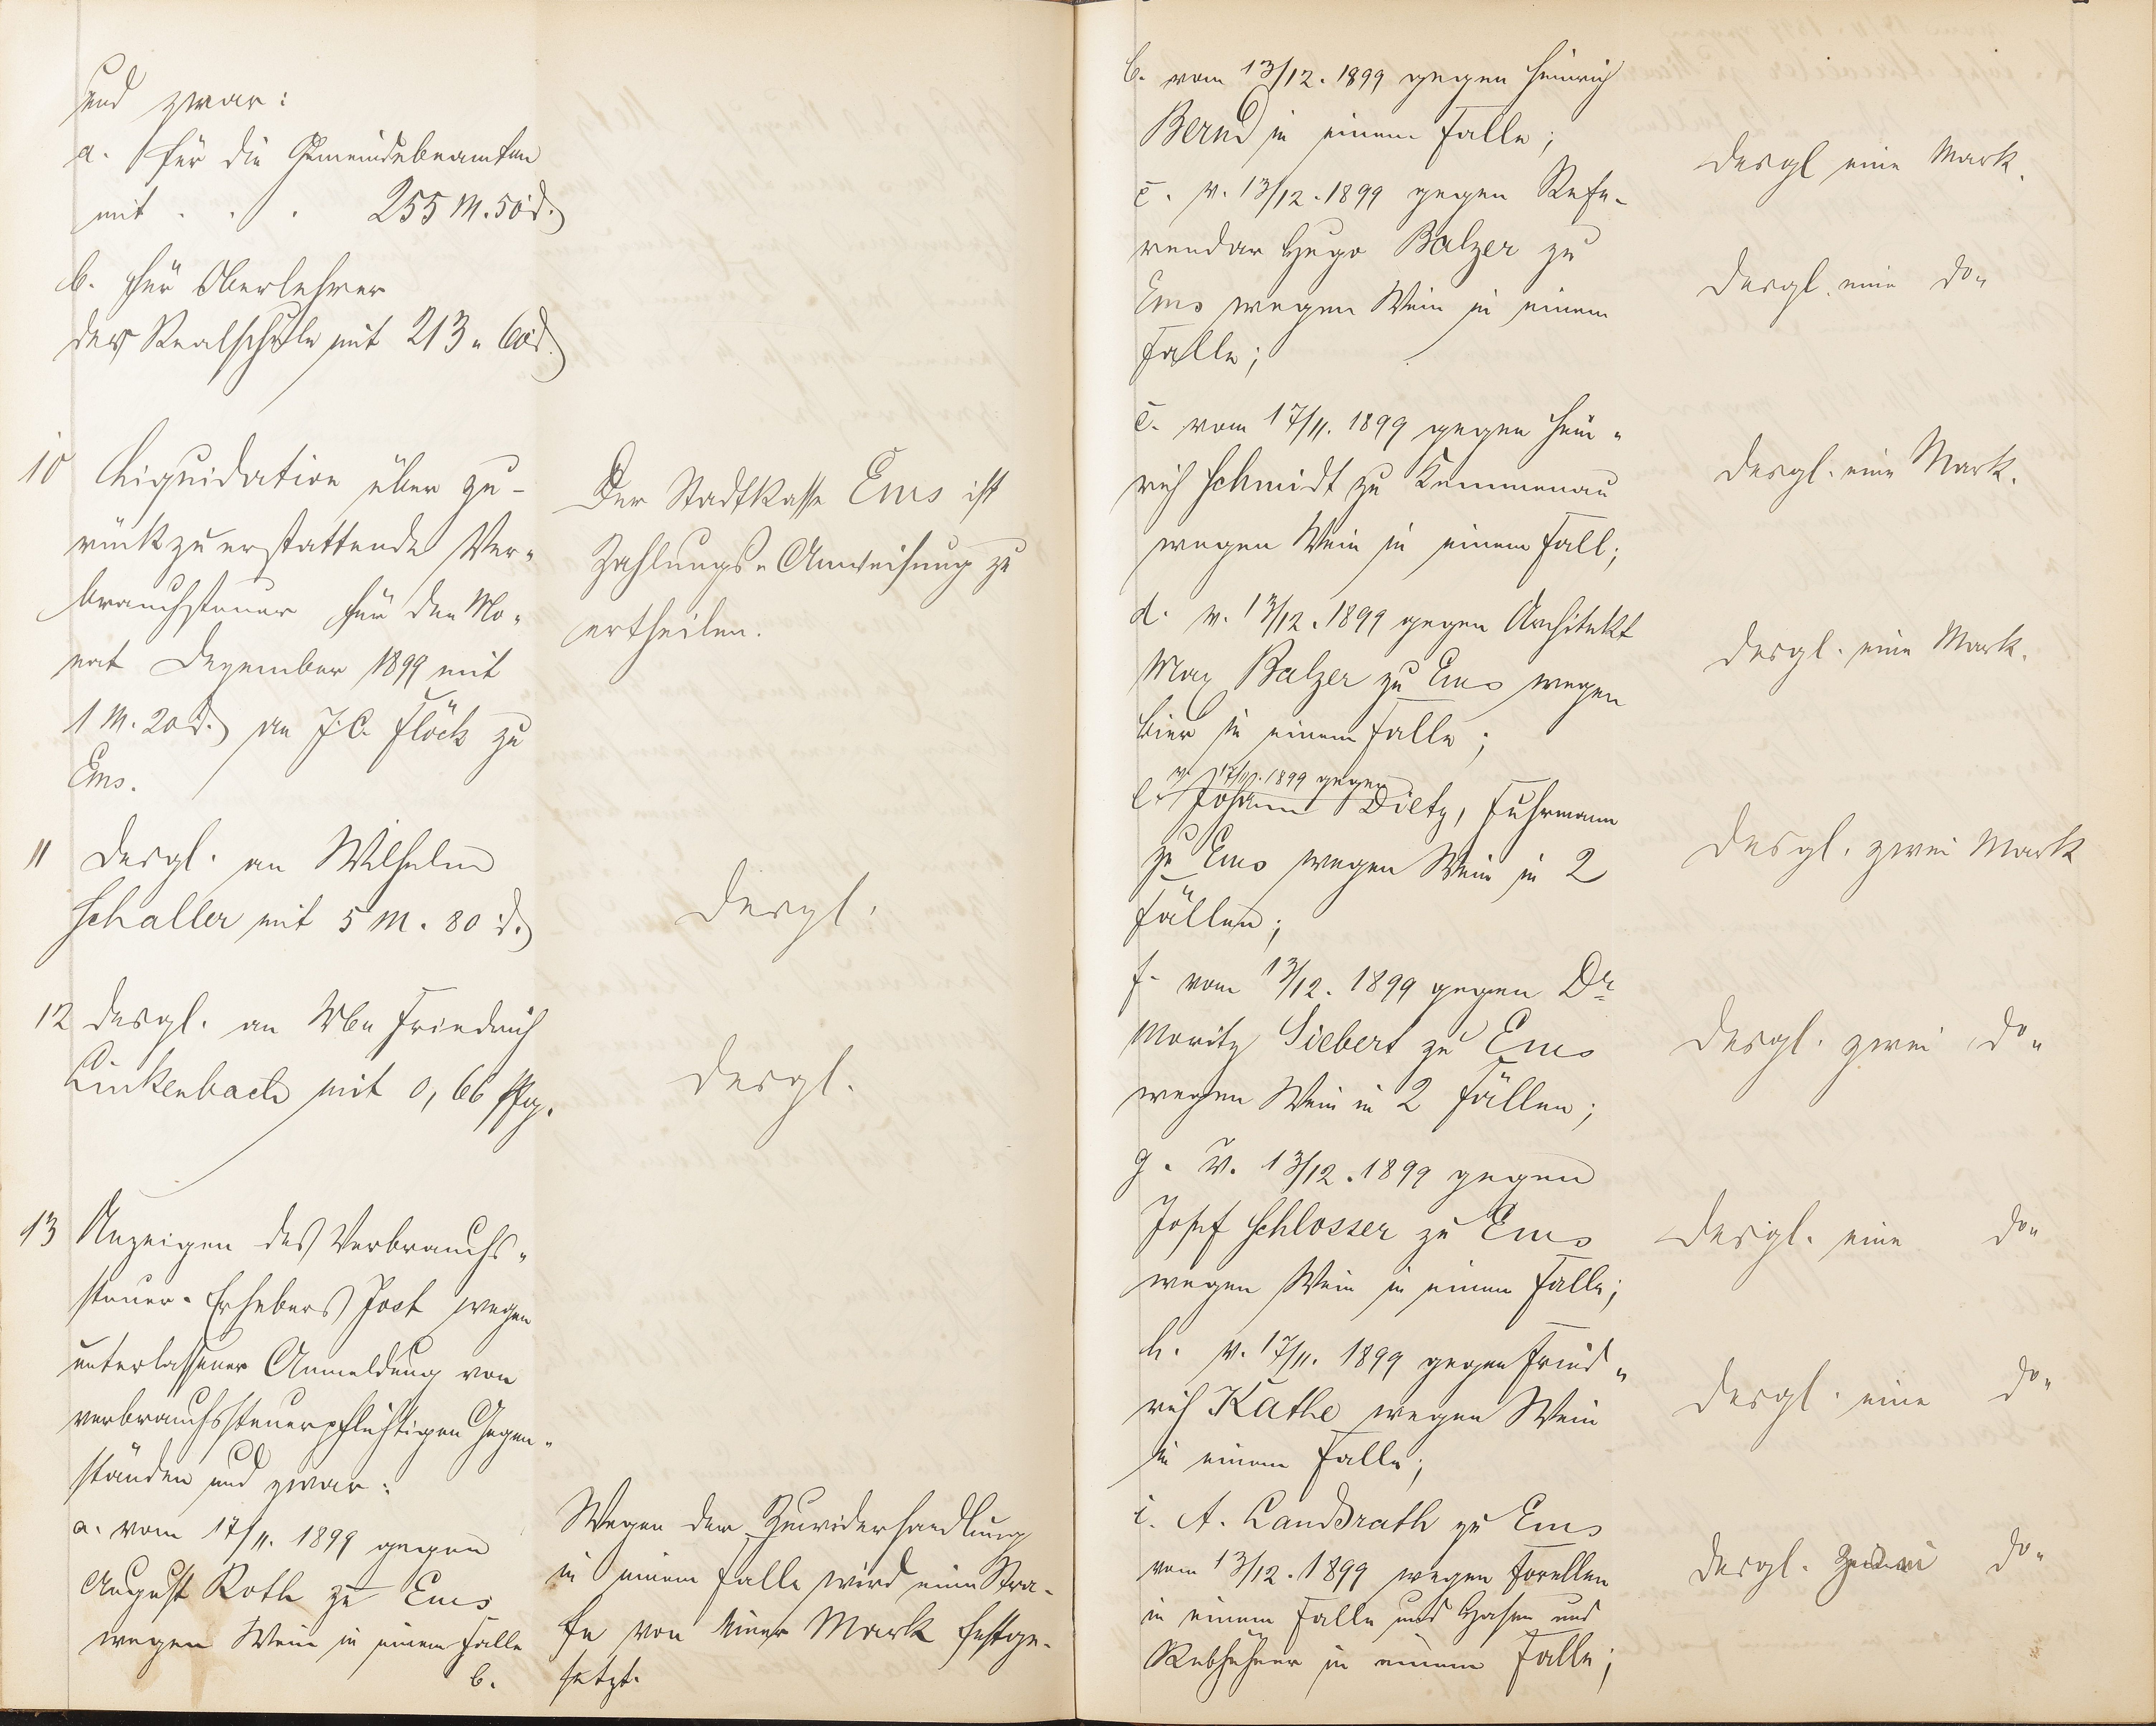 und zwar:
a. für die Gemeindebeamten
mit . . . 255 M. 50 d.
b. für Oberlehrer
der Realschule mit 213 " 60 d.
10 Liquidation über zu-
rückzuerstattende Ver-
brauchsteuer für den Mo-
nat Dezember 1899 mit
1 M. 20 d. an J. C. Flöck zu
Ems.
Der Stadtkasse Ems ist
Zahlungs-Anweisung zu
ertheilen.
11 Desgl. an Wilhelm
Schaller mit 5 M. 80 d.
Desgl.
12 Desgl. an Wwe Friedrich
Linkenbach mit 0,66 Pfg.
Desgl.
13 Anzeigen des Verbrauchs-
steuer-Erhebers Jost wegen
unterlassener Anmeldung von
verbrauchssteuerpflichtigen Gegen-
ständen und zwar:
a. vom 17/11. 1899 gegen
August Roth zu Ems
wegen Wein in einem Falle
b.
Wegen der Zuwiderhandlung
in einem Falle wird eine Stra-
fe von einer Mark festge-
setzt.
b. vom 13/12. 1899 gegen Heinrich
Bernd in einem Falle;
Desgl eine Mark.
c. v. 13/12. 1899 gegen Refe-
rendar Hugo Balzer zu
Ems wegen Wein in einem
Falle;
Desgl. eine do "
c. vom 17/11. 1899 gegen Hein-
rich Schmidt zu Kemmenau
wegen Wein in einem Fall;
Desgl. eine Mark.
d. v. 13/12. 1899 gegen Architekt
Max Balzer zu Ems wegen
Bier in einem Falle;
Desgl. eine Mark.
v. 17/11. 1899 gegen
e. Johann Dietz, Fuhrmann
zu Ems wegen Wein in 2
Fällen;
Desgl. zwei Mark
f. vom 13/12. 1899 gegen Dr
Moritz Siebert zu Ems
wegen Wein in 2 Fällen;
Desgl. zwei do "
g. v. 13/12. 1899 gegen
Josef Schlosser zu Ems
wegen Wein in einem Falle;
Desgl. eine do "
h. v. 17/11. 1899 gegen Fried-
rich Kathe wegen Wein
in einem Falle;
Desgl. eine do "
i. A. Landsrath zu Ems
vom 13/12. 1899 wegen Forellen
in einem Falle und Hasen und
Rebhühner in einem Falle;
Desgl. zwei do "